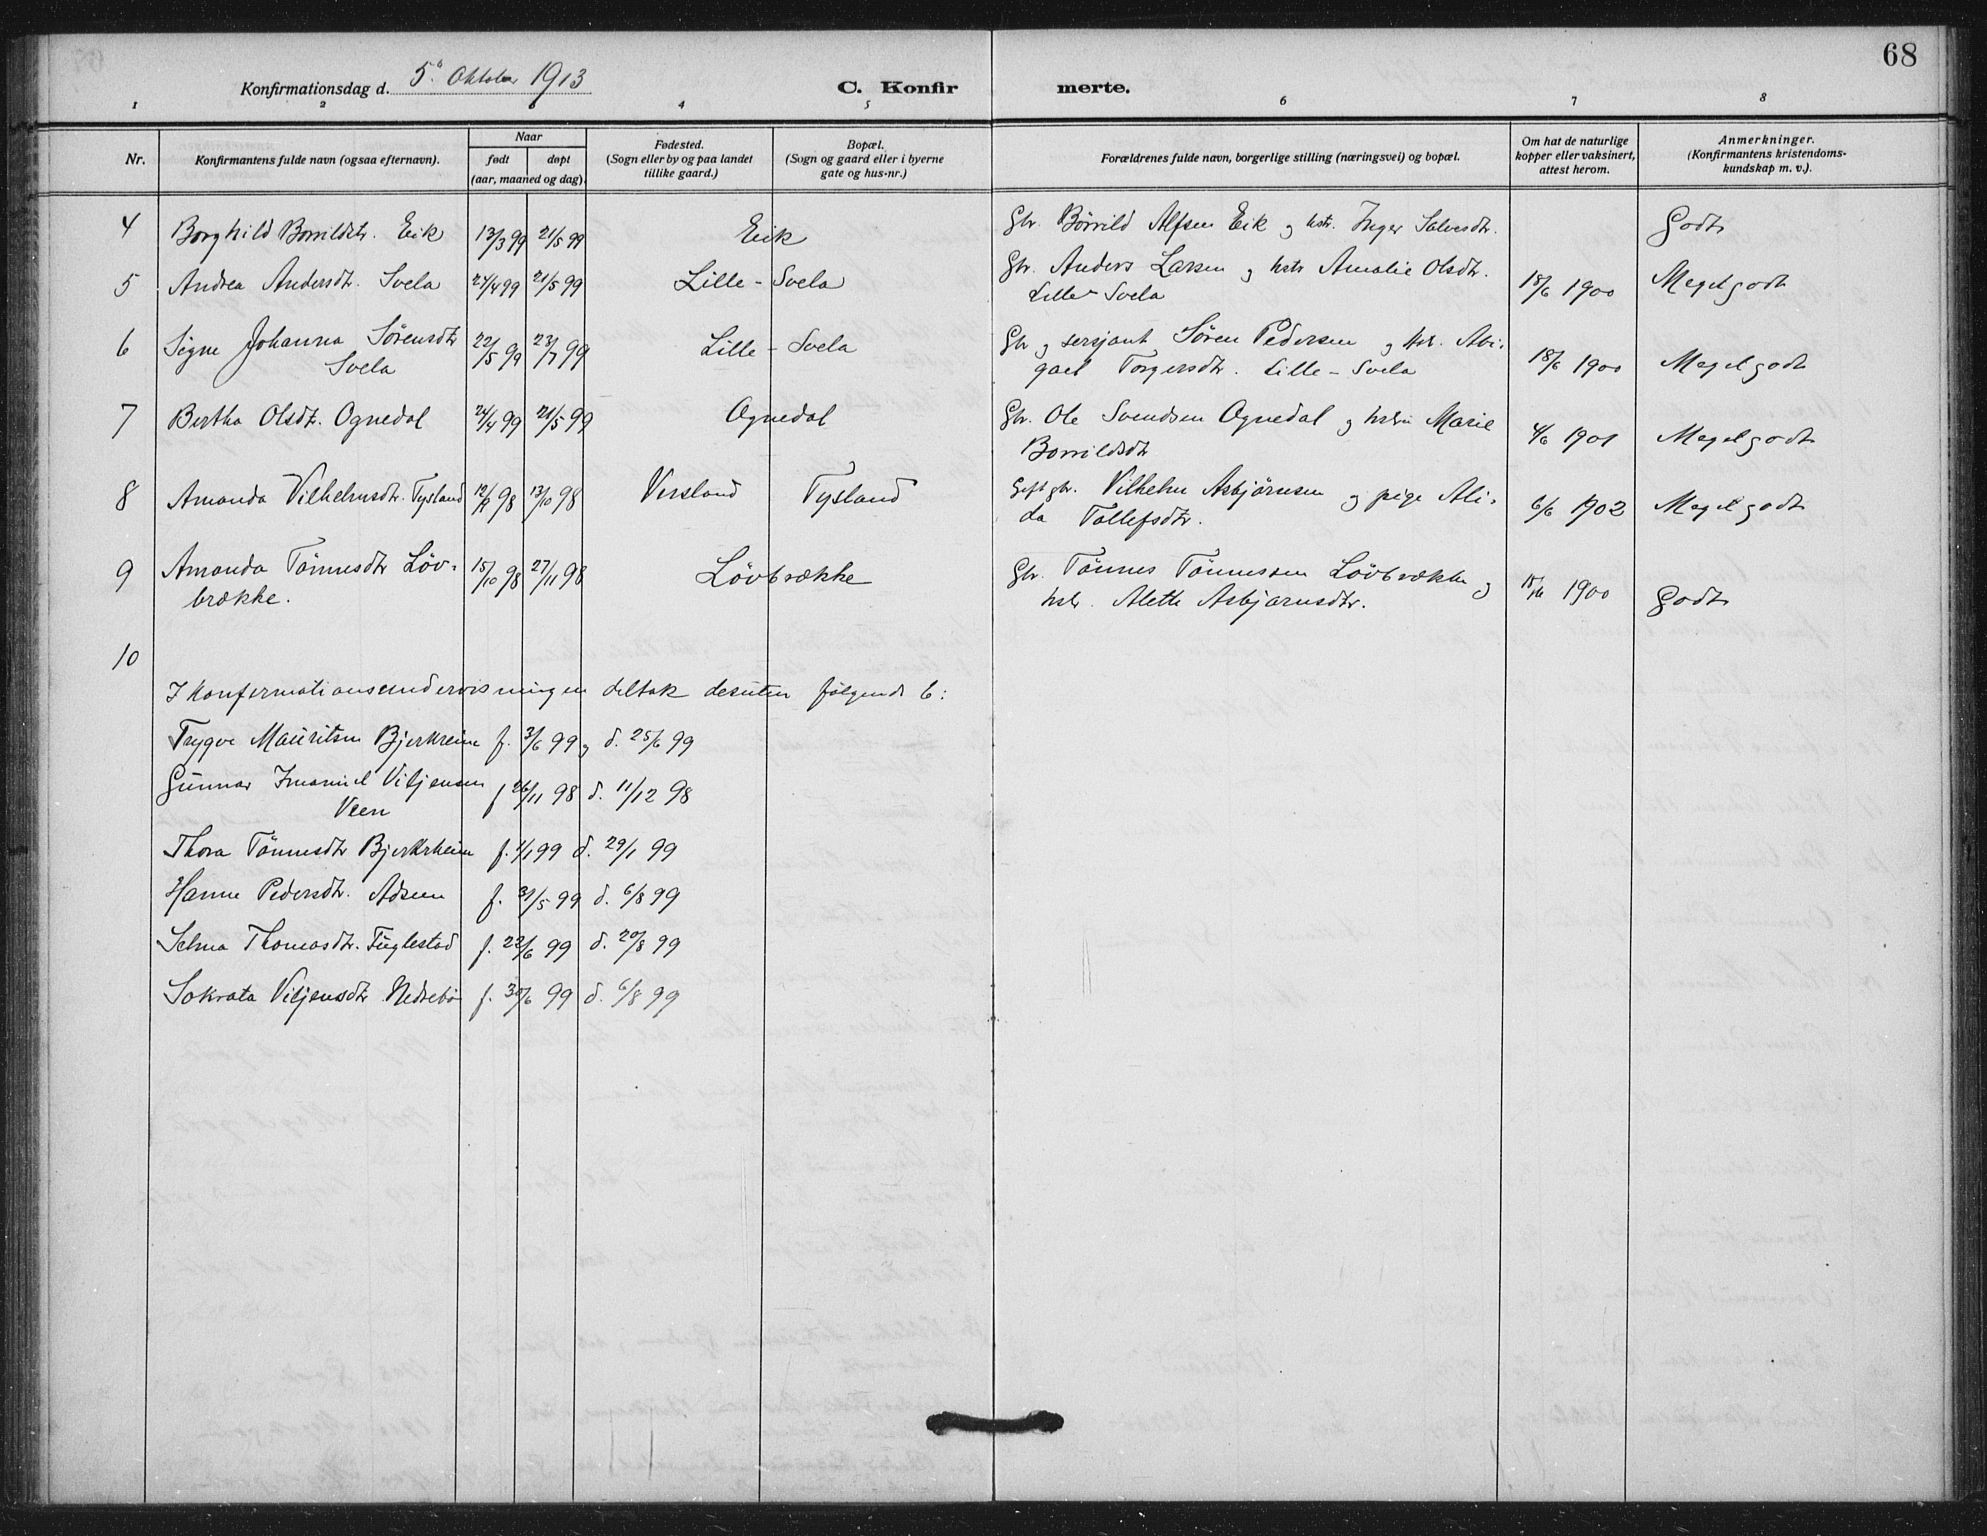 68
Konfirmationsdag d. 5' Oktober 1913 C. Konfirmerte.
1 2 3 4 5 6 7 8
Nr. Konfirmantens fulde navn (ogsaa efternavn). Naar født døpt (aar, maaned og dag). Fødested. (Sogn eller by og paa landet tillike gaard.) Bopæl. (Sogn og gaard eller i byerne gate og hus-nr.) Forældrenes fulde navn, borgerlige stilling (næringsvei) og bopæl. Om hat de naturlige kopper eller vaksinert, attest herom. Anmerkninger. (Konfirmantens kristendoms-kundskap m. v.).
4 Borghild Borrildsdtr. Eik 13/3 99 21/5 99 Eik Gbr. Børrild Alfsen Eik og hstr. Inger Salvesdtr. Godt
5 Andrea Andersdtr. Svela 24/4 99 21/5 99 Lille-Svela Gbr. Anders Larsen og hstr Amalie Olsdtr. 18/6 1900 Meget godt
Lille-Svela
6 Signe Johanna Sörensdtr 22/5 99 23/7 99 Lille-Svela Gbr og sersjant Sören Pedersen og hstr. Abi- 18/6 1900 Meget godt
Svela gael Torgersdtr. Lille-Svela
7 Bertha Olsdtr. Ognedal 24/4 99 21/5 99 Ognedal Gbr. Ole Svendsen Ognedal og hstru Marie 4/6 1901 Meget godt
Borrildsdtr
8 Amanda Vilhelmsdtr. Tysland 98 13/10 98 Versland Tysland Gift gbr. Vilhelm Asbjörnsen og pige Ali- 6/6 1902 Meget godt
da Tollefsdtr.
9 Amanda Tönnesdtr Löv- 15/10 98 27/11 98 Lövbrække Gbr. Tönnes Tönnessen Lövbrække og 1900 Godt
brække. hstr. Alette Asbjørnsdtr.
10
I konfirmationsundervisningen deltok desuten følgende 6:
Trygve Mauritsen Bjerkreim f. 3/6 99, d. 25/6 99
Gunnar Imanuel Viljensen f 26/11 98 d. 11/12 98
Veen
Thora Tönnesdtr Bjerkrheim f. 1/1 99 d. 29/1 99
Hanne Pedersdtr. Adseen f. 31/5 99 d. 6/8 99
Selma Thomasdtr. Fuglestad f. 22/6 99 d. 20/8 99
Sokrata Viljensdtr Nedrebö f. 30/6 99 d. 6/8 99